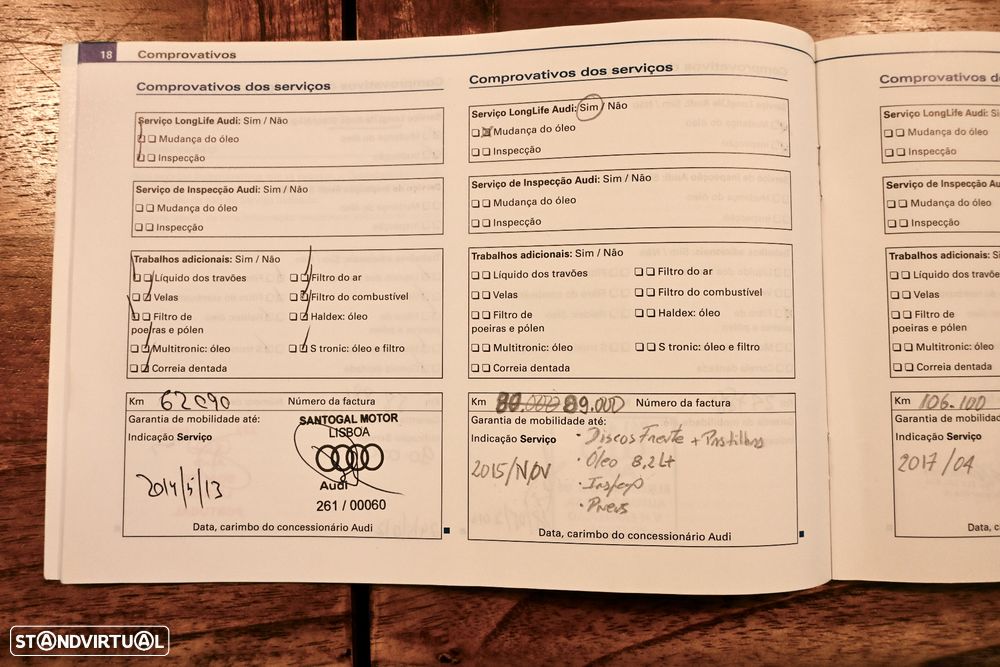 18 Comprovativos
Comprovativos dos serviços
Serviço LongLife Audi: Sim / Não
Mudança do óleo
Inspecção
Serviço de Inspecção Audi: Sim / Não
Mudança do óleo
Inspecção
Trabalhos adicionais: Sim / Não
Líquido dos travões
Filtro do ar
Velas
Filtro do combustível
Filtro de
poeiras e pólen
Haldex: óleo
Multitronic: óleo
S tronic: óleo e filtro
Correia dentada
Km 62090 Número da factura
Garantia de mobilidade até:
Indicação Serviço
SANTOGAL MOTOR
LISBOA
Audi
261 / 00060
2014/5/13
Data, carimbo do concessionário Audi
Comprovativos dos serviços
Serviço LongLife Audi: Sim / Não
Mudança do óleo
Inspecção
Serviço de Inspecção Audi: Sim / Não
Mudança do óleo
Inspecção
Trabalhos adicionais: Sim / Não
Líquido dos travões
Filtro do ar
Velas
Filtro do combustível
Filtro de
poeiras e pólen
Haldex: óleo
Multitronic: óleo
S tronic: óleo e filtro
Correia dentada
Km 89.000 Número da factura
Garantia de mobilidade até:
Indicação Serviço
• Discos Frente + Pastilhas
• Óleo 8,2 Lt
• Pneus
2015/Nov
Data, carimbo do concessionário Audi
Comprovativos d
Serviço LongLife Audi: Si
Mudança do óleo
Inspecção
Serviço de Inspecção Au
Mudança do óleo
Inspecção
Trabalhos adicionais: Si
Líquido dos travões
Velas
Filtro de
poeiras e pólen
Multitronic: óleo
Correia dentada
Km 106.100
Garantia de mobilidade
Indicação Serviço
2017/04
Data, c
STANDVIRTUAL